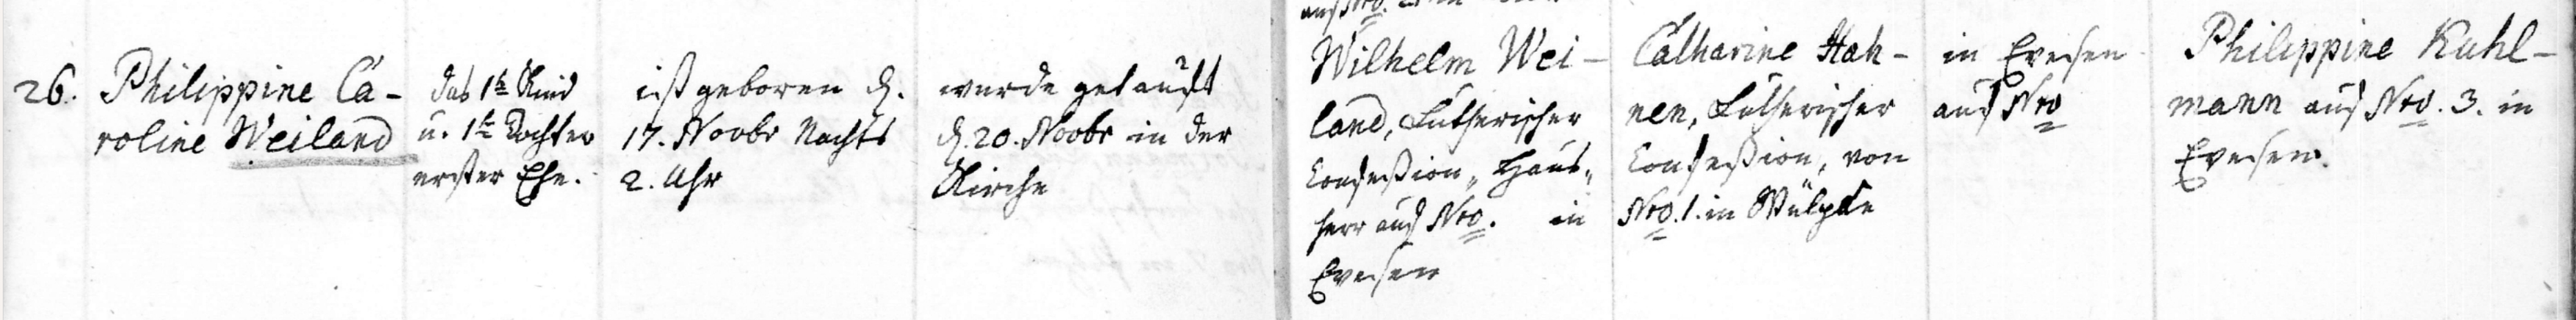 26.
Philippine Ca-
roline Weiland
das 1te Kind
u. 1te Tochter
erster Ehe.
ist geboren d.
17. Novbr Nachts
2. Uhr
wurde getauft
d. 20. Novbr in der
Kirche
Wilhelm Wei-
land, Lutherischer
Confeßion, Haus-
herr auf Nro. in
Evesen
Catharine Hah-
nen, Lutherischer
Confeßion, von
Nro. 1. in Wülpke
in Evesen
auf Nro
Philippine Kuhl-
mann auf Nro. 3. in
Evesen.